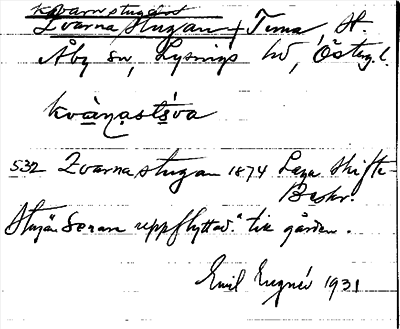 Kvarnstugan
Qvarnastugan, Tuna, St.
Åby sn, Lysings hd, Östergl.
kvàṇastɯ́va
532 Qvarnastugan 1874 Laga skifte-
Beskr.
Stugan "Senare uppflyttad" till gården.
Emil Eugnér 1931